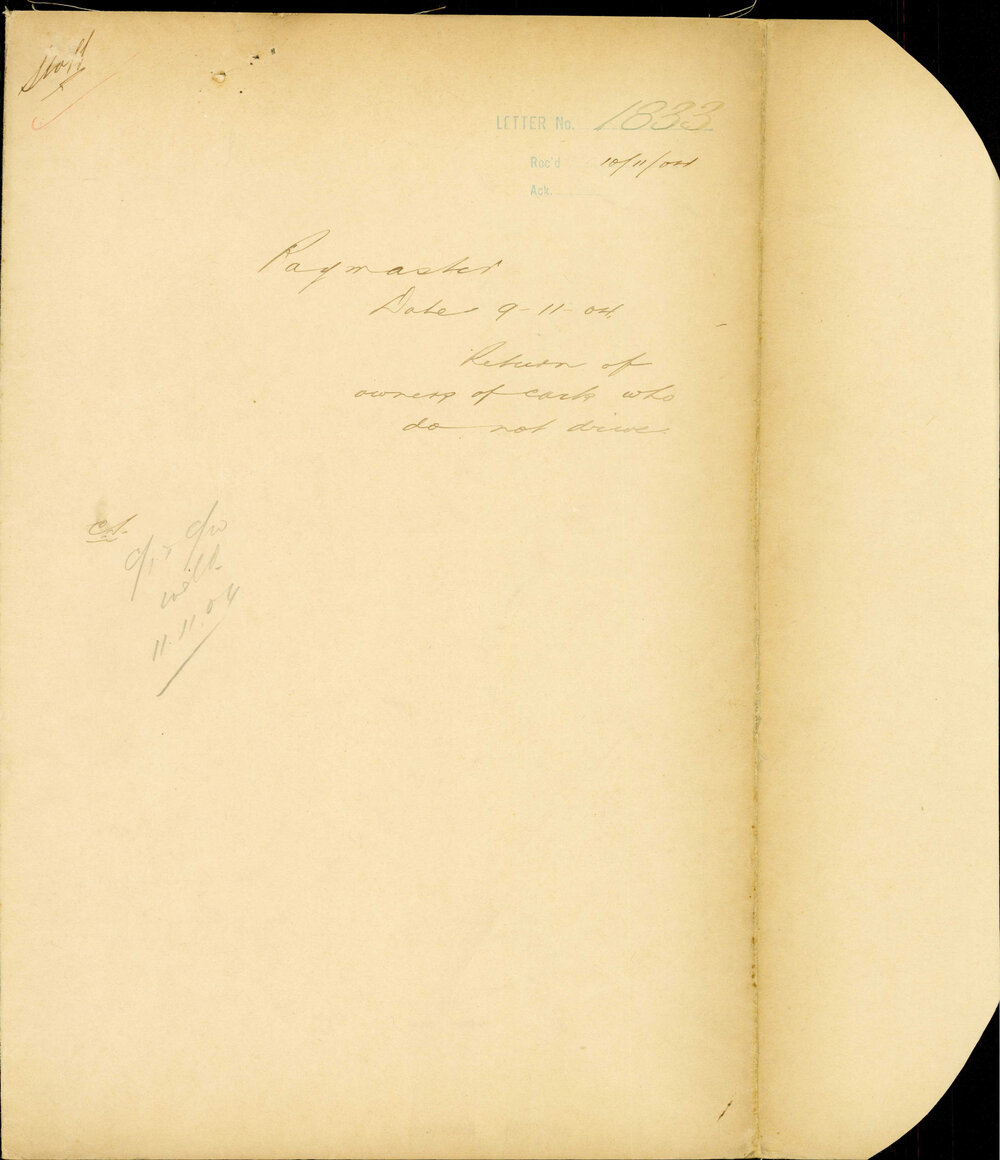 Staff
LETTER No. 1833
Rec'd 10/11/04
Ack.
Paymaster
Date 9-11-04
Return of
owners of carts who
do not drive
11.11.04